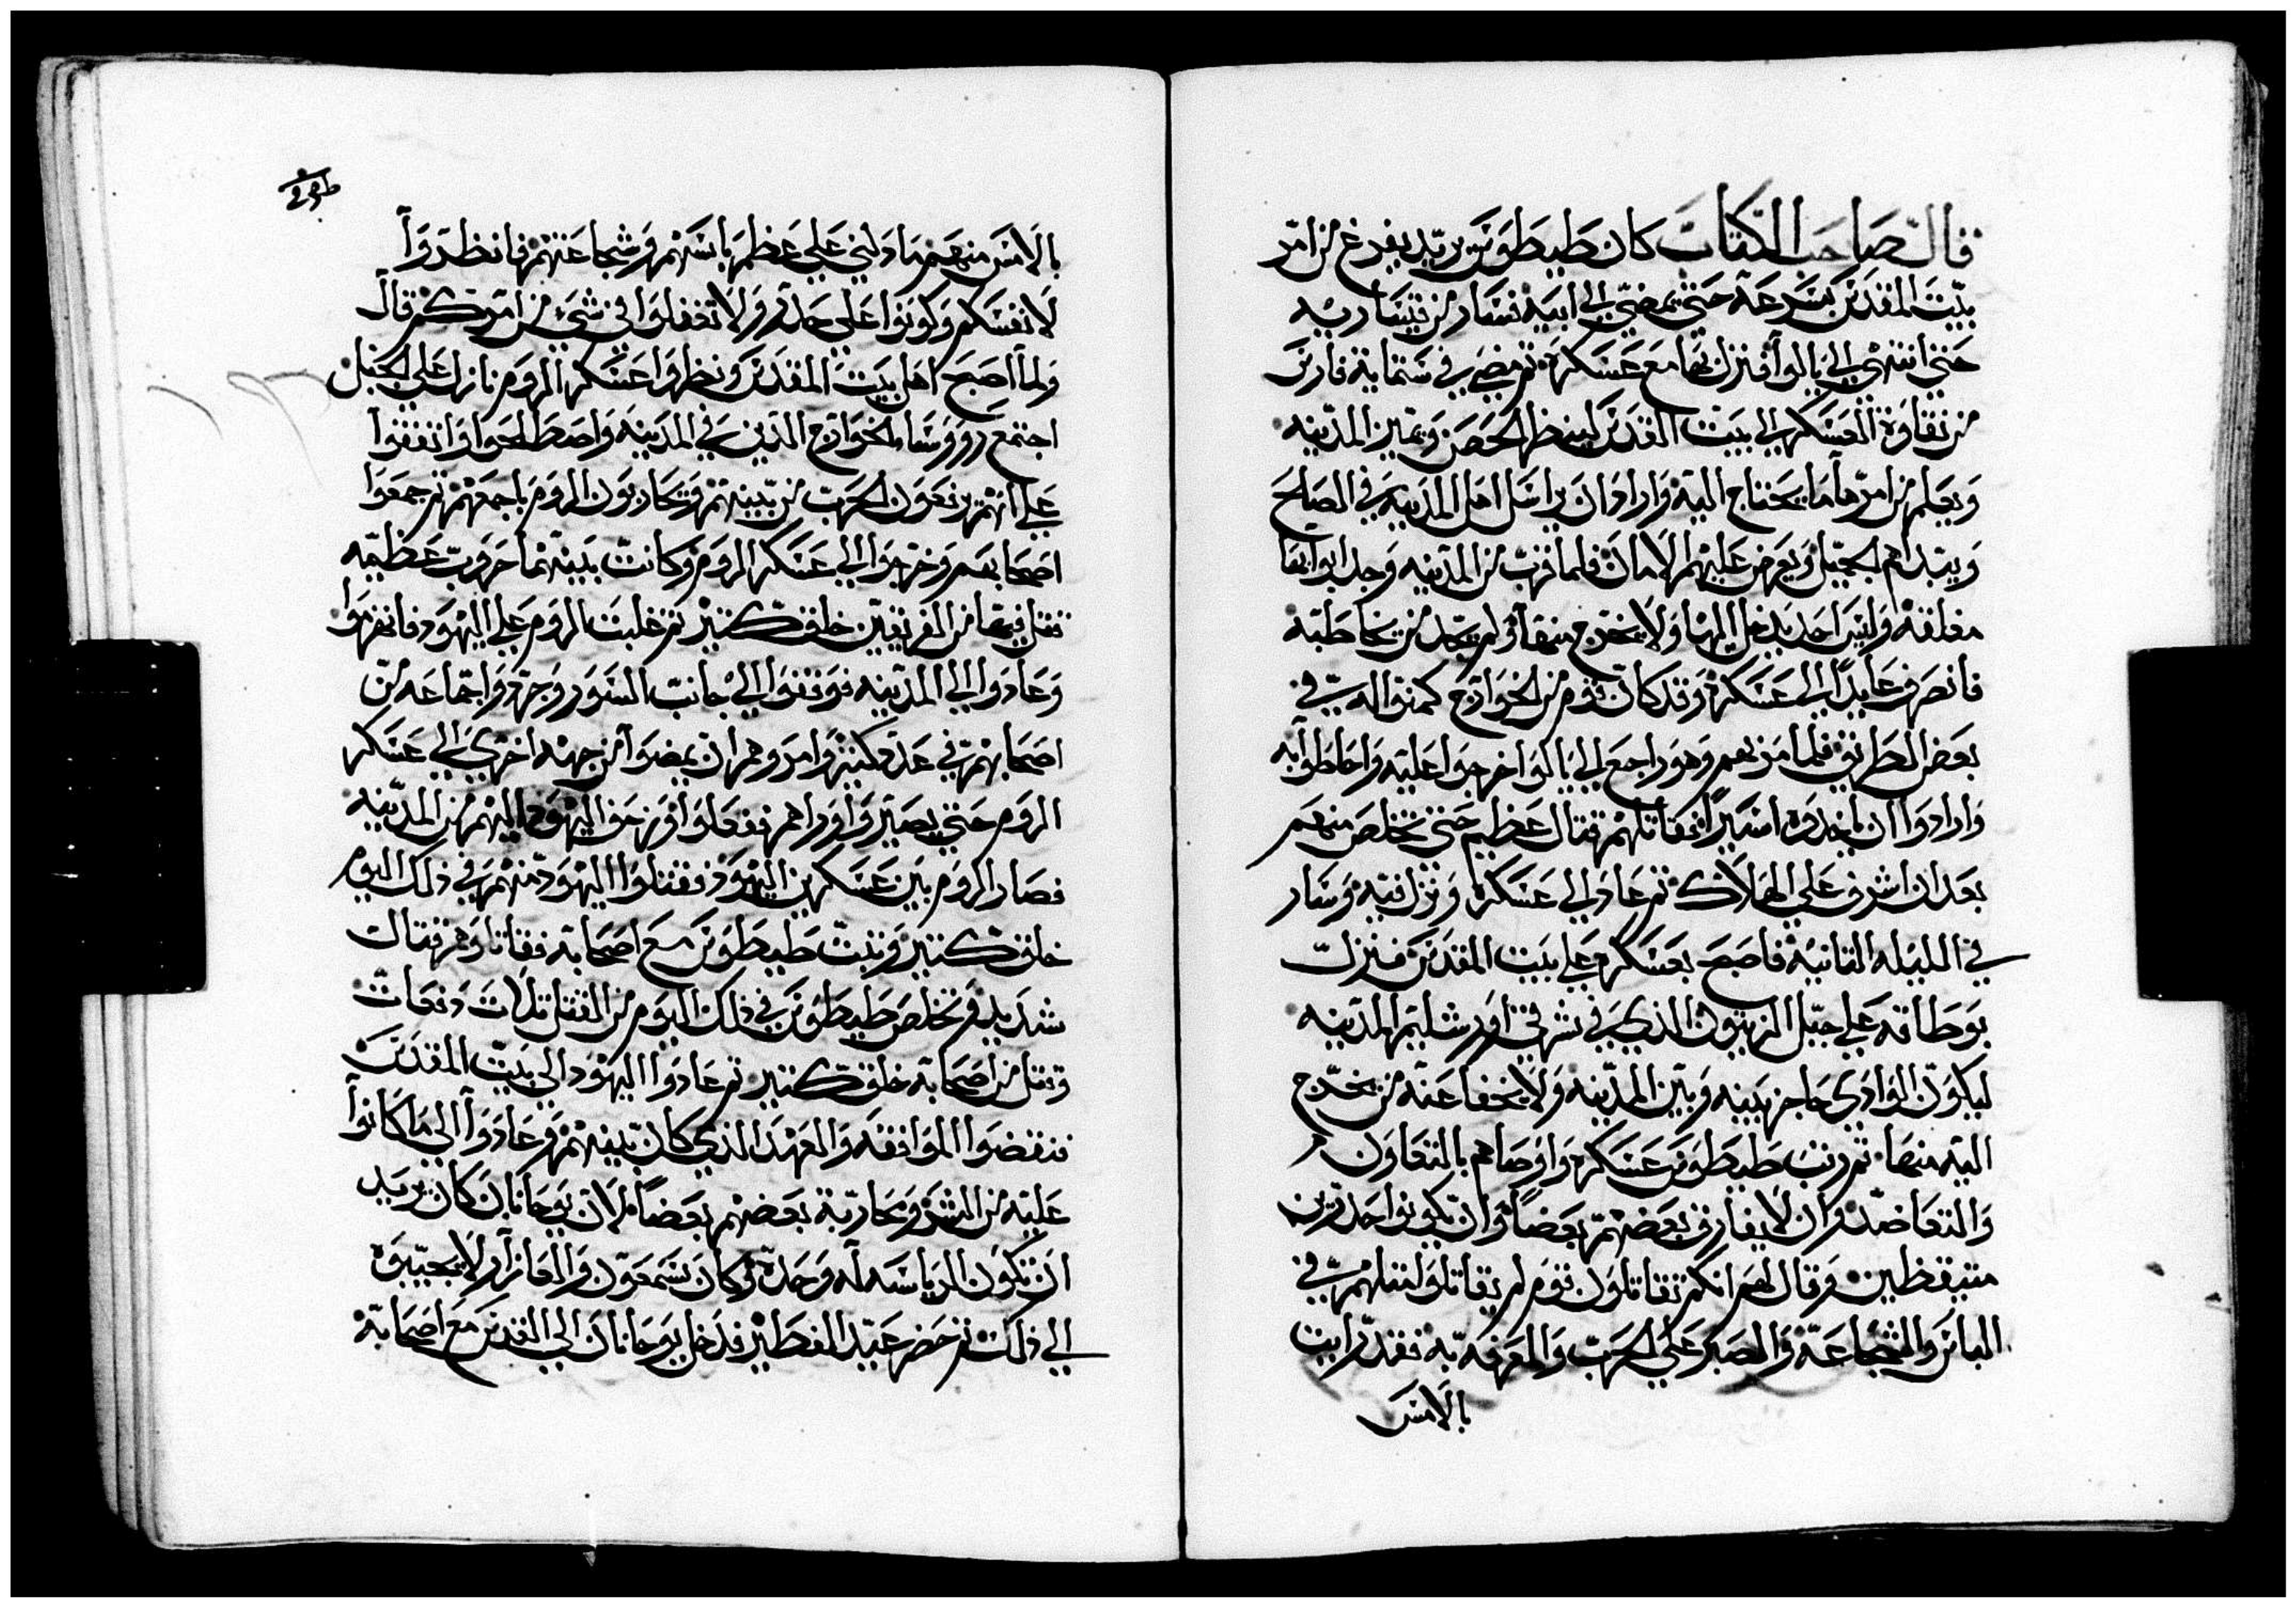 قال صاحب الكتاب كان طيطوس يريد يفرغ من امر
بيت المقدس بسرعة حتى يمضي الى ابيه فسار من قيساريه
حتى انتهى الى يالوا فنزل بها مع عسكره ثم مضى في ستماية فارس
من نقاوة العسكر الى بيت المقدس لينظر الحصن ويميز المدينه
ويعلم من امرها ما يحتاج اليه واراد ان يراسل اهل المدينه في الصلح
ويبتداهم بالجميل ويعرض عليهم الامان فلما قرب من المدينه وجد ابوابها
مغلقه وليس احد يدخل اليها ولا يخرج منها ولم يجد من يخاطبه
فانصرف عايدًا الى عسكره وقد كان قوم من الخوارج كمنوا له في
بعض الطريق فلما مر بهم وهو راجع الى يالوا خرجوا عليه واحاطوا به
وارادوا ان ياخذوه اسيرًا فقاتلهم قتال عظيم حتى تخلص منهم
بعد ان اشرف على الهلاك ثم عاد الى عسكره ونزل فيه وسار
في الليله الثانيه فاصبح بعسكره على بيت المقدس فنزل
بوطاقه على جبل الزيتون الذي في شرقي اورشليم المدينه
ليكون الوادي حاجز بينه وبين المدينه ولا يخفا عنه من يخرج
اليه منها ثم رتب طيطوس عسكره واوصاهم بالتعاون
والتعاضد وان لا يفارق بعضهم بعضًا وان يكونوا حذرين
متيقظين وقال لهم انكم تقاتلون قوم لم يقاتلوا مثلهم في
الباس والشجاعة والصبر على الحرب والمعرفه به فقد رايت
بالامس
بالامس منهم ما دلني على عظم باسهم وشجاعتهم فانظروا
لانفسكم وكونوا على حذر ولا تغفلوا في شيء من امركم قال
ولما اصبح اهل بيت المقدس ونظروا عسكر الروم نازل على الجبل
اجتمع رووسا الخوارج الذين في المدينه واصطلحوا واتفقوا
على انهم يرفعون الحرب من بينهم ويحاربون الروم باجمعهم ثم جمعوا
اصحابهم وخرجوا الى عسكر الروم وكانت بينهما حروب عظيمه
فقتل فيها من الفريقين خلق كثير ثم غلبت الروم على اليهود فانهزموا
وعادوا الى المدينه فوقفوا الى جانب السور وجردوا جماعه من
اصحابهم في عدة كثيرة وامروهم ان يمضوا من جهة اخرى الى عسكر
الروم حتى يصيروا وراهم ففعلوا وزحف اليهود اليهم من المدينه
فصار الروم بين عسكرين اليهود فقتلوا اليهود منهم في ذلك اليوم
خلق كثير وثبت طيطوس مع اصحابه فقاتلوهم قتال
شديد وتخلص طيطوس في ذلك اليوم من القتل ثلاث دفعات
وقتل من اصحابه خلق كثير ثم عادوا اليهود الى بيت المقدس
فنقضوا الموافقه والعهد الذي كان بينهم وعادوا الى ما كانوا
عليه من الشر ومحاربة بعضهم بعضًا لان يوحانان كان يريد
ان تكون الرياسه له وحده وكان شمعون والعازار لا يجيبوه
الى ذلك ثم حضر عيد الفطير فدخل يوحانان الى القدس مع اصحابه